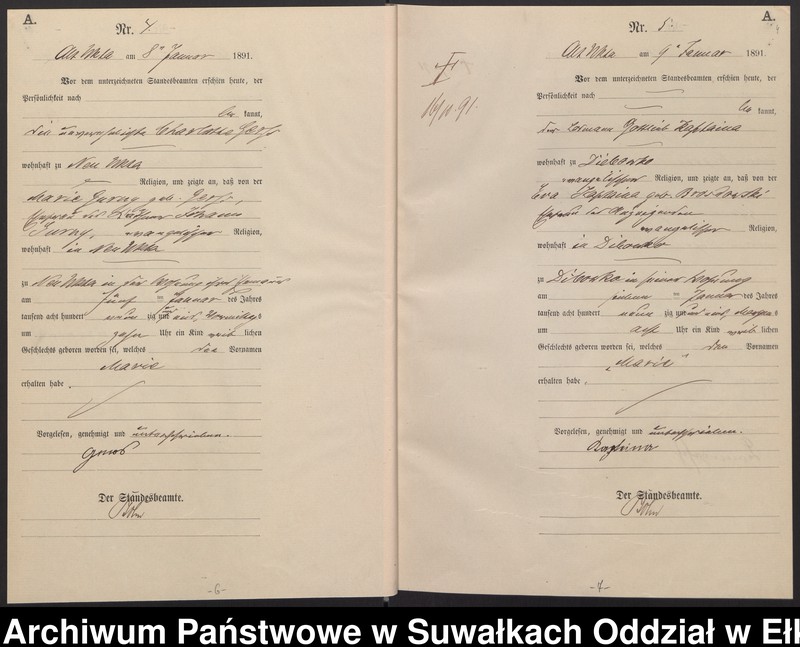 A.
Nr. 4.
am 8ⁿ Januar 1891.
Vor dem unterzeichneten Standesbeamten erschien heute, der
Persönlichkeit nach
be kannt,
die unverehelichte Charlotte
wohnhaft zu Neu
Religion, und zeigte an, daß von der
Marie geb.
Ehefrau des Käthner Johann
evangelischer Religion,
wohnhaft in Neu
zu Neu in der Wohnung
am fünf ten Januar des Jahres
tausend acht hundert neun zig und eins, Vormittags
um zehn Uhr ein Kind weib lichen
Geschlechts geboren worden sei, welches den Vornamen
Marie
erhalten habe.
Vorgelesen, genehmigt und unterschrieben.
Der Standesbeamte.
-6-
I
91.
A.
Nr. 5.
am 9ⁿ Januar 1891.
Vor dem unterzeichneten Standesbeamten erschien heute, der
Persönlichkeit nach
be kannt,
der Losmann Gottlieb Kaptaina
wohnhaft zu Dibowko
evangelischer Religion, und zeigte an, daß von der
Eva Kaptaina geb.
Ehefrau des Anzeigenden
evangelischer Religion,
wohnhaft in Dibowko
zu Dibowko in seiner Wohnung
am ten Januar des Jahres
tausend acht hundert neun zig und eins,
um acht Uhr ein Kind weib lichen
Geschlechts geboren worden sei, welches den Vornamen
„Marie“
erhalten habe.
Vorgelesen, genehmigt und unterschrieben.
Der Standesbeamte.
-7-
Archiwum Państwowe w Suwałkach Oddział w Ełk